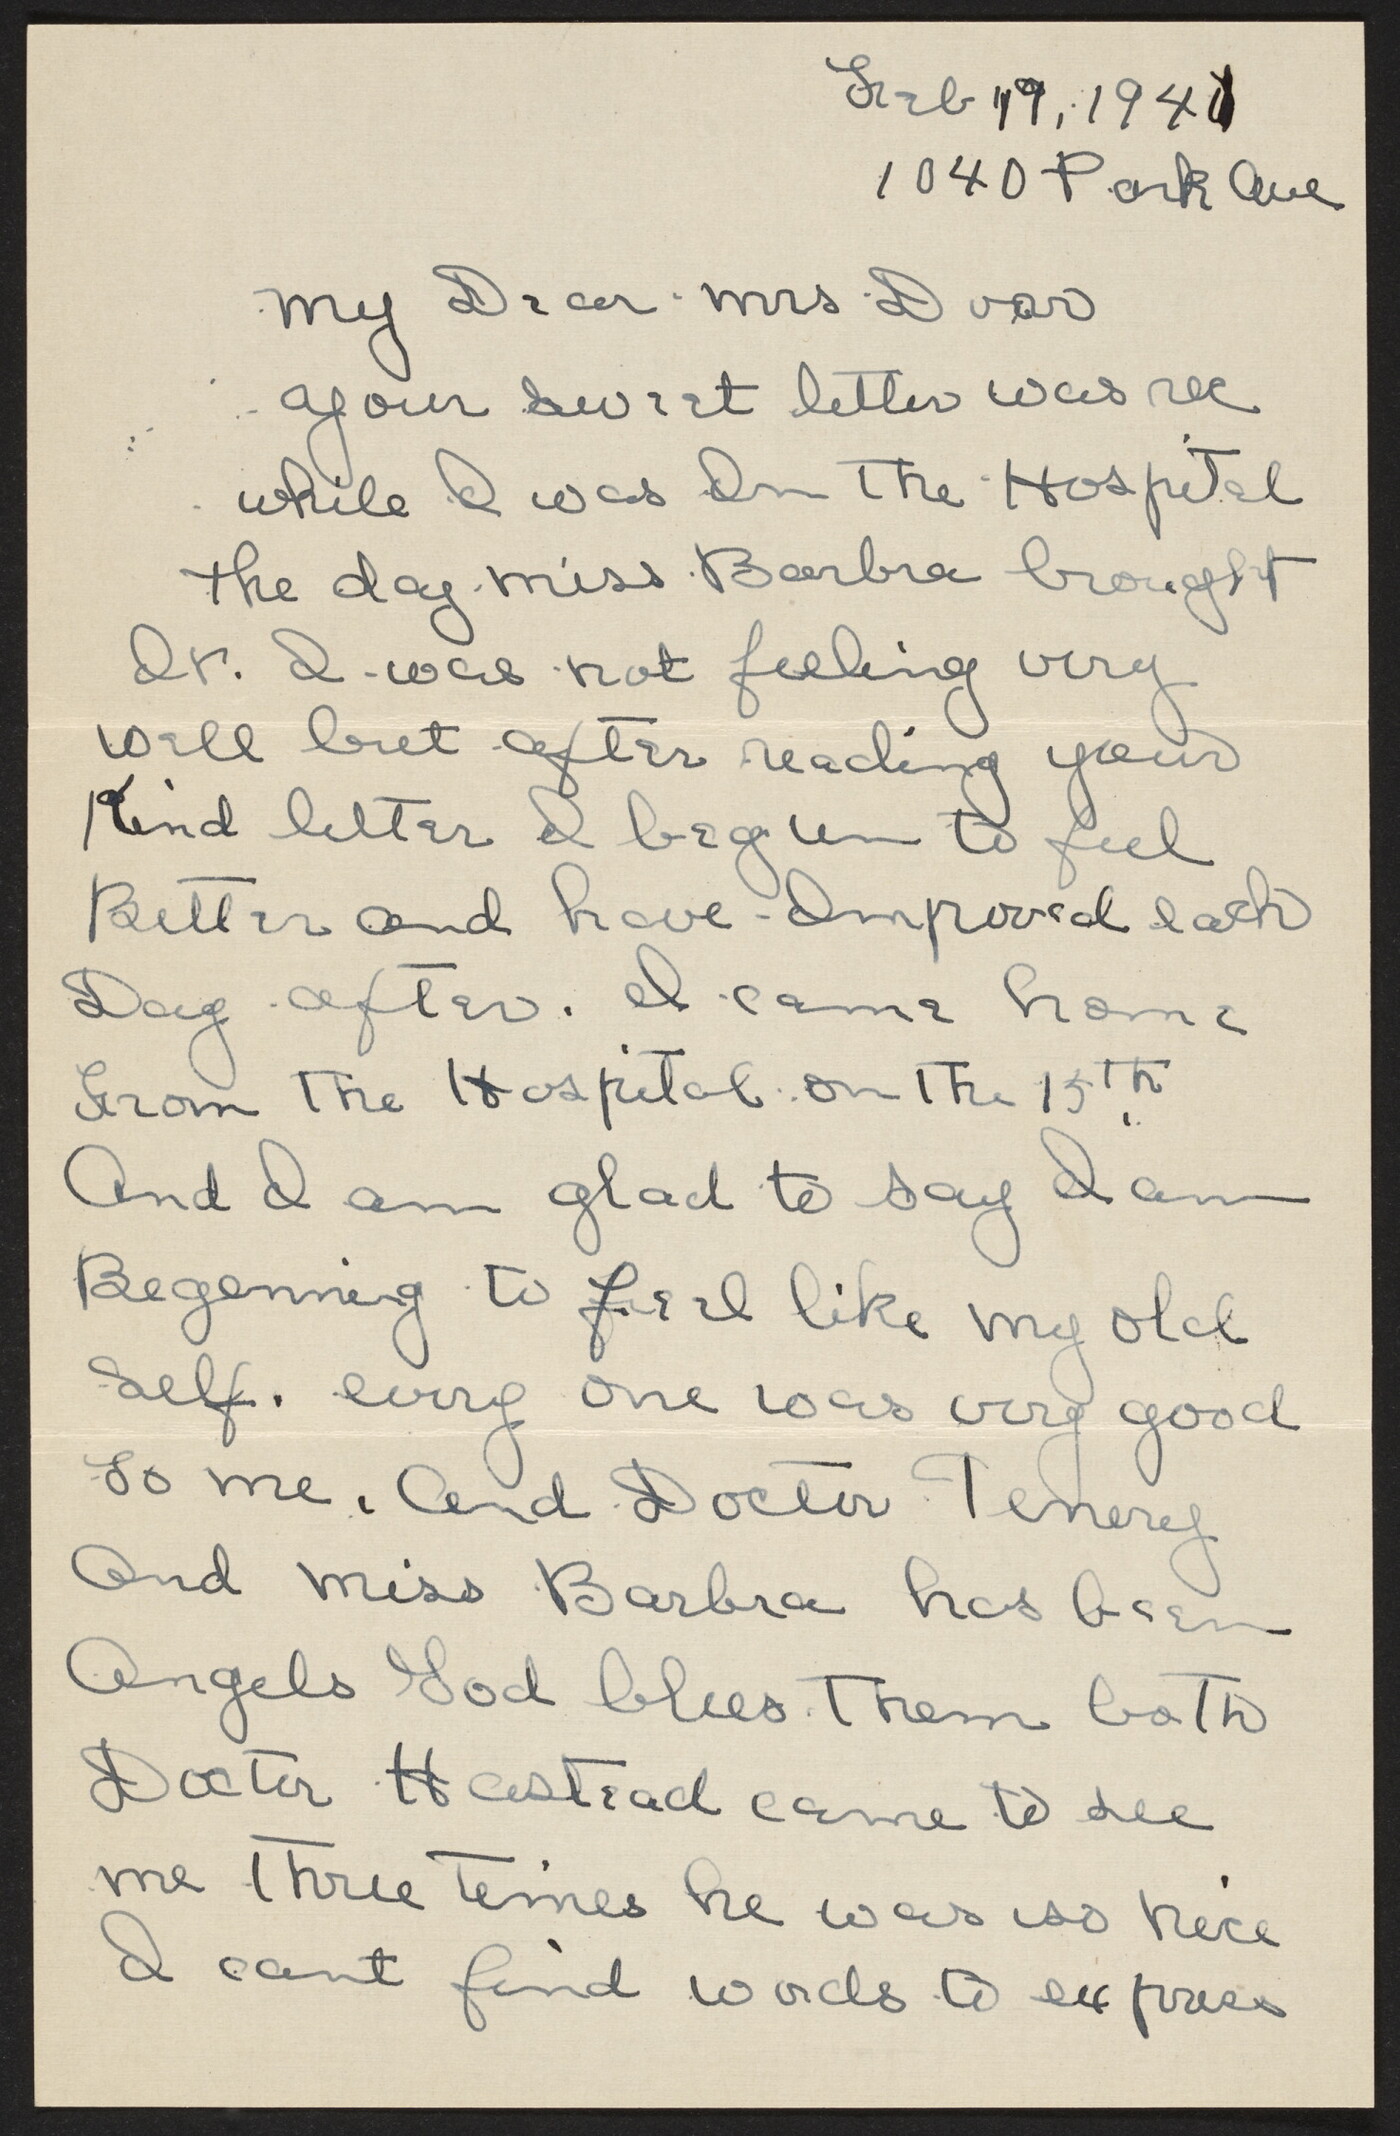 Feb 19, 1941
1040 Park Ave
My Dear Mrs
your sweet letter was rec
while I was In the Hospital
the day miss Barbra brought
It. I was not feeling very
well but after reading your
Kind letter I begun to feel
Better and have Improved each
Day after. I came home
From the Hospital on the 15th
And I am glad to say I am
Begenning to feel like my old
Self. every one was very good
To me. And Doctor
And Miss Barbra has been
Angels God blees them both
Doctor Hastead came to see
me three times he was so nice
I cant find words to express